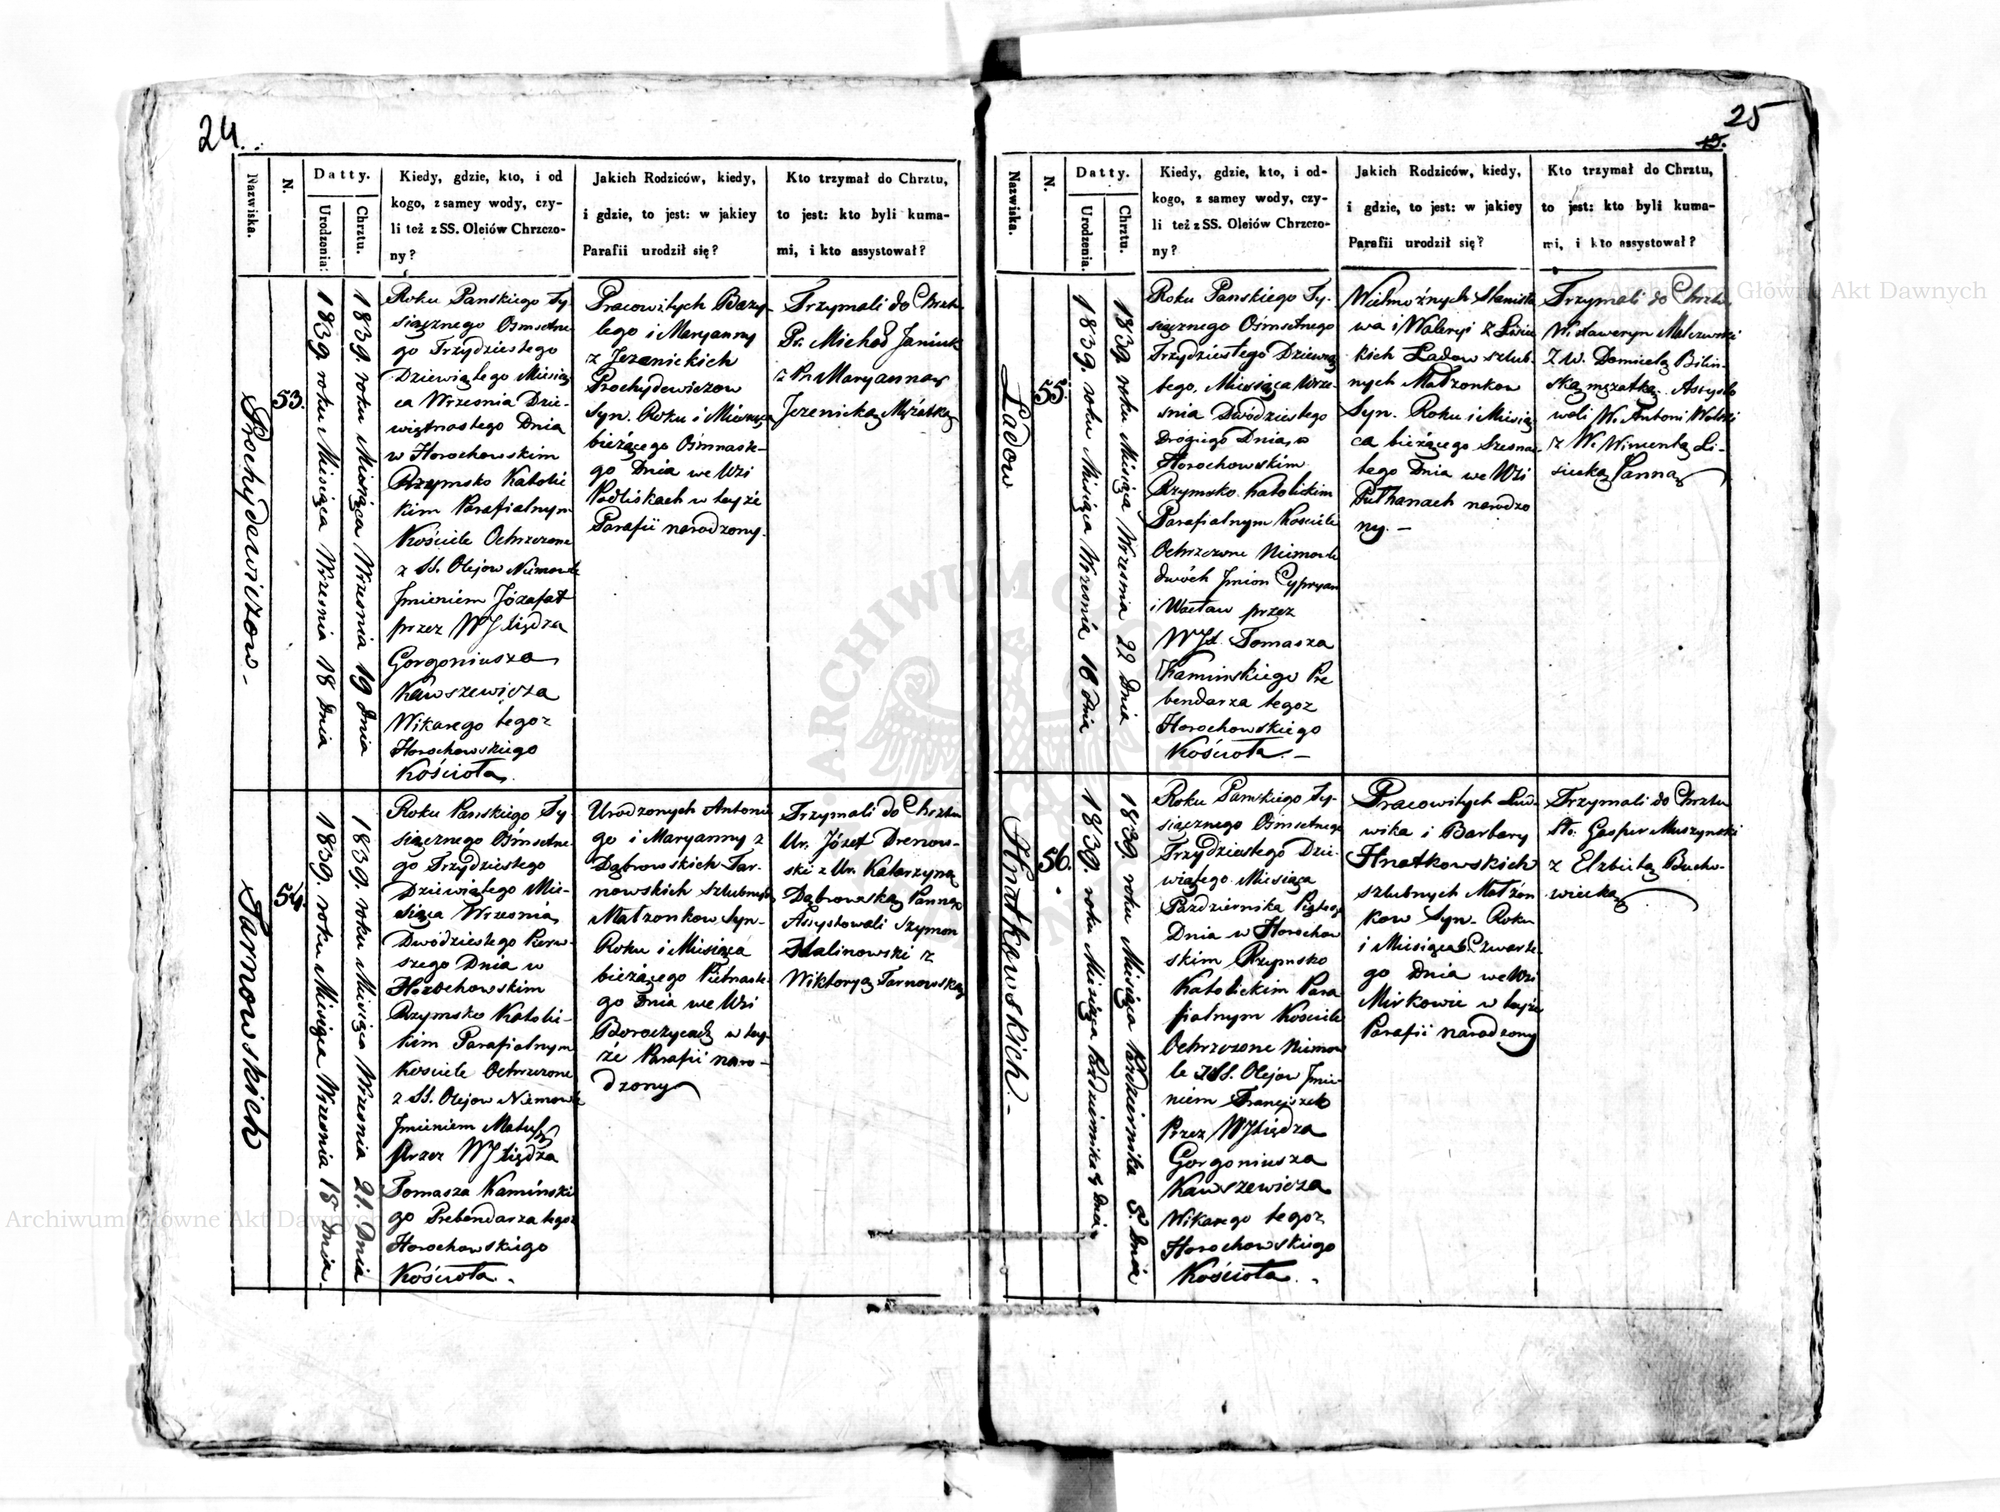 24.
Nazwiska.
N.
Datty.
Urodzenia.
Chrztu.
Kiedy, gdzie, kto, i od
kogo, z samey wody, czy-
li też z SS. Oleiów Chrzczo-
ny?
Jakich Rodziców, kiedy,
i gdzie, to jest: w jakiey
Parafii urodził się?
Kto trzymał do Chrztu,
to jest: kto byli kuma-
mi, i kto assystował?
Prochydewiczow -
53.
1839. roku Miesiąca Wrzesnia 18 Dnia
1839. roku Miesiąca Wrzesnia 19 Dnia
Roku Panskiego Ty-
siącznego Ośmsetne-
go Trzydziestego
Dziewiątego Miesią-
ca Wrzesnia Dzie-
więtnastego Dnia
w Horochowskim
Rzymsko Katolic-
kim Parafialnym
Kościele Ochrzczone
z SS. Olejow Niemowle
Jmieniem Józafat
przez WJ Xiędza
Gorgoniusza
Kawszewicza
Wikarego tegoż
Horochowskiego
Kościoła.
Pracowitych Bazy-
lego i Maryanny
z Jezenickich
Prochydewiczow
Syn. Roku i Miesiąca
bieżącego Ośmnaste-
go Dnia we Wsi
Podliskach w teyże
Parafii narodzony.
Trzymali do Chrztu
Pr. Michał Janiuk
z Pr. Maryanną
Jezenicką Mężatką
Tarnowskich
54.
1839. roku Miesiąca Wrzesnia 15 Dnia.
1839. roku Miesiąca Wrzesnia 21. Dnia
Roku Panskiego Ty-
siącznego Ośmsetne-
go Trzydziestego
Dziewiątego Mie-
siąca Wrzesnia
Dwódziestego Pierw-
szego Dnia w
Horochowskim
Rzymsko Katolic-
kim Parafialnym
Kościele Ochrzczone
z SS. Olejow Niemowle
Jmieniem
Przez WJ Xiędza
Tomasza Kamińskie-
go Prebendarza tegoż
Horochowskiego
Kościoła. -
Urodzonych Antonie-
go i Maryanny z
Dąbrowskich Tar-
nowskich szlubnych
Małzonkow Syn.
Roku i Miesiąca
bieżącego Piętnaste-
go Dnia we Wsi
w tey-
że Parafii naro-
dzony
Trzymali do Chrztu
Ur. Józef Drenow-
ski z Ur. Katarzyną
Dąbrowską Panną
Assystowali Szymon
Kalinowski z
Wiktoryą Tarnowską
25
Nazwiska.
N.
Datty.
Urodzenia.
Chrztu.
Kiedy, gdzie, kto, i od-
kogo, z samey wody, czy-
li też z SS. Oleiów Chrzczo-
ny?
Jakich Rodziców, kiedy,
i gdzie, to jest: w jakiey
Parafii urodził się?
Kto trzymał do Chrztu,
to jest: kto byli kuma-
mi, i kto assystował?
Ładow
55.
1839. roku Miesiąca Wrzesnia 16 Dnia
1839. roku Miesiąca Wrzesnia 22 Dnia
Roku Panskiego Ty-
siącznego Ośmsetnego
Trzydziestego Dziewią-
tego. Miesiąca Wrze-
snia Dwódziestego
Drógiego Dnia, w
Horochowskim
Rzymsko. Katolickim
Parafialnym Kościele
Ochrzczone Niemowle
dwóch Jmion Cypryan
i Wacław przez
WJX. Tomasza
Kaminskiego Pre
bendarza tegoż
Horochowskiego
Kościoła. -
Wielmożnych Stanisła
wa i Waleryi z
kich Ładow szlub-
nych Małżonkow
Syn. Roku i Miesią
ca bieżącego Szesnas
tego Dnia we Wsi
Pułhanach narodzo
ny. -
Trzymali do Chrztu
W. Xaweryn Malczewski
z W. Domicelą Bilin-
ską mężatką. Assysto
wali W. Antoni Wolski
z W. Wincentą Li-
siecką Panną
Hnatkowskich. -
56.
1839. roku Miesiąca Pazdziernika 4 Dnia.
1839. roku Miesiąca Pazdziernika 5. Dnia
Roku Panskiego Ty-
siącznego Ośmsetnego
Trzydziestego Dzie-
wiątego. Miesiąca
Pazdziernika Piątego
Dnia w Horochow
skim Rzymsko
Katolickim Para
fialnym Kościele
Ochrzczone Niemow
le z SS. Olejow Jmie-
niem Franciszek
Przez WJ Xiędza
Gorgoniusza
Kawszewicza
Wikarego tegoż
Horochowskiego
Kościoła. -
Pracowitych Lud-
wika i Barbary
Hnatkowskich
szlubnych Małżon
kow Syn. Roku
i Miesiąca Czwarte-
go Dnia we Wsi
Mirkowie w teyże
Parafii narodzony
Trzymali do Chrztu
Gasper Muszynski
z Elzbietą Pucho-
wiecką
Archiwum Główne Akt Dawnych
Archiwum Główne Akt Dawnych